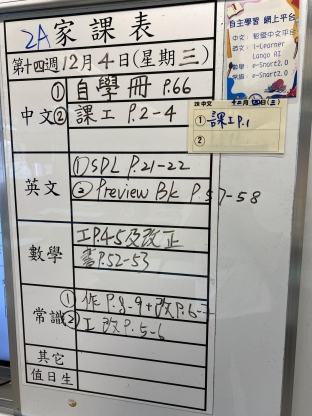 2A 家課表
第十四週 12月4日(星期三)
中文 ① 自學冊 P.66
② 課工 P.2-4
英文 ① SDL P.21-22
② Preview Bk P.57-58
數學 工P.45及改正
書P.52-53
常識 ① 作 P.8-9 + 改P.6-7
② 工 改 P.5-6
其它
值日生
自主學習 網上平台
英文: i-Learner
常識: e-Smart2.0
中文
① 課工P.1
②